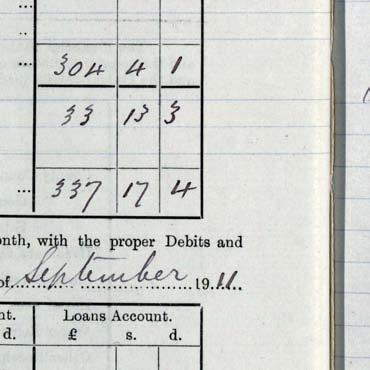 ...
..
... 304 4 1
33 13 3
... 337 17 4
onth, with the proper Debits and
of September 1911.
nt. Loans Account.
d. £ s. d.